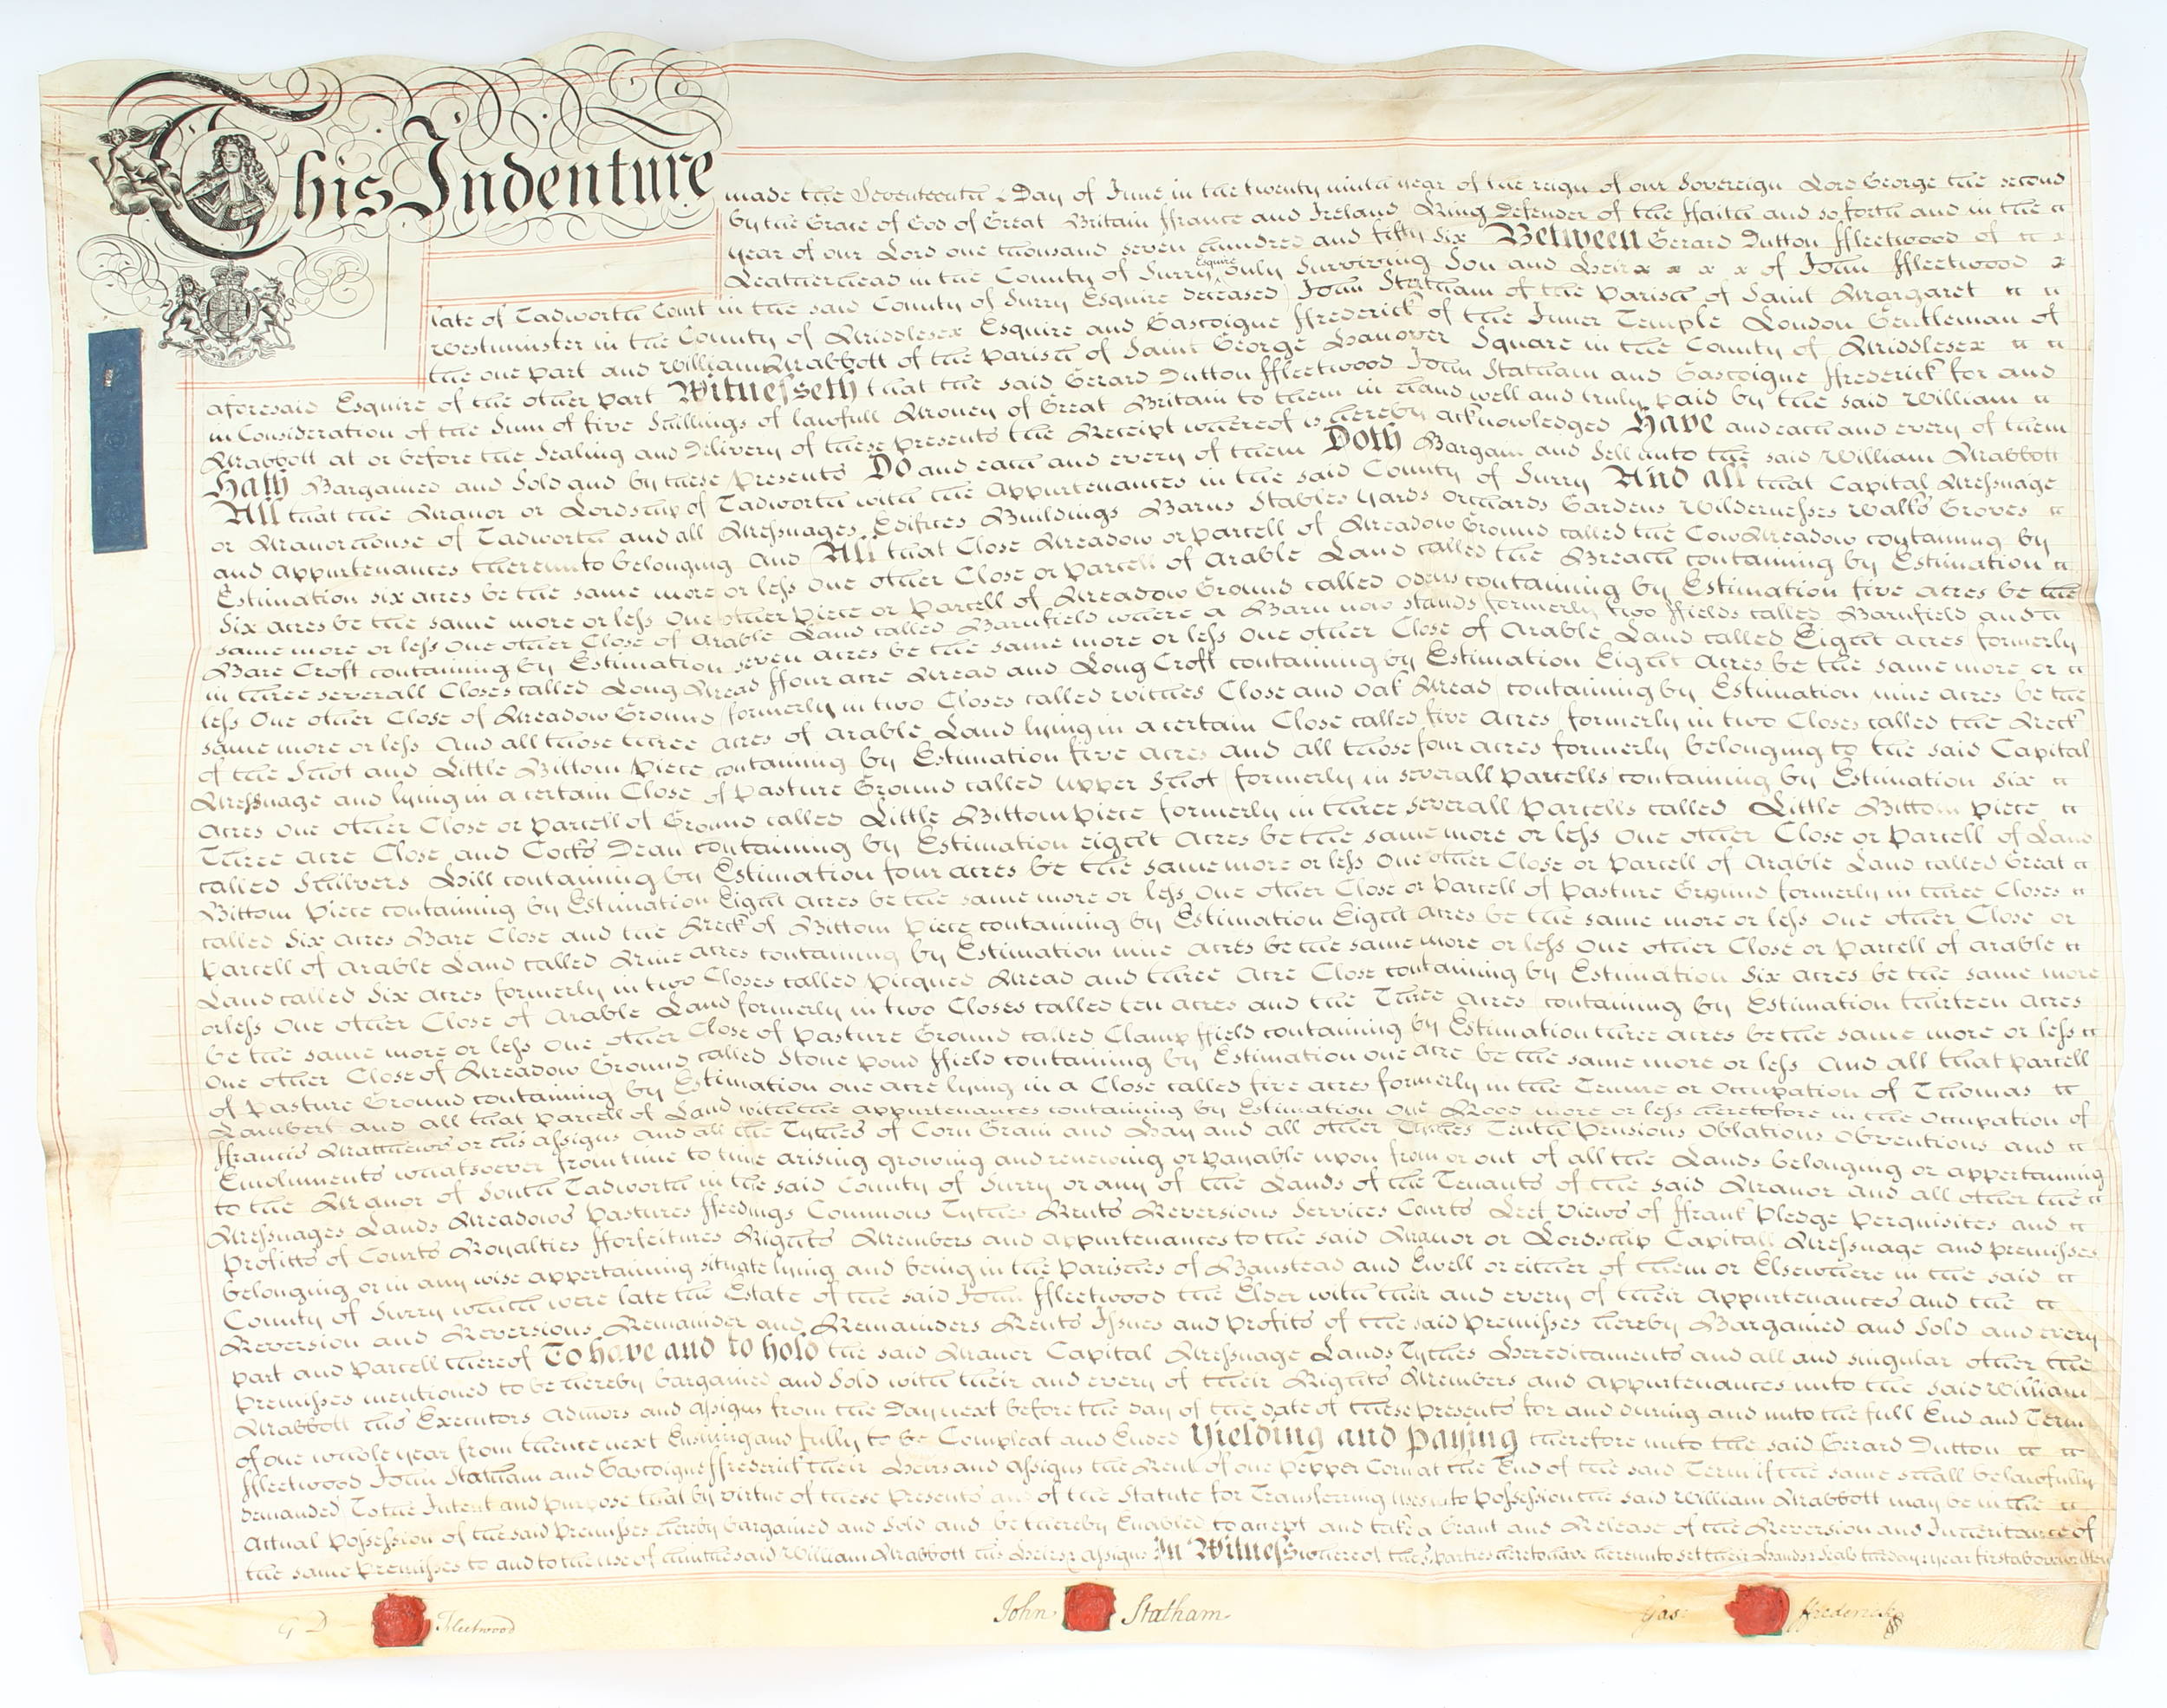 This Indenture made the Seventeenth Day of June in the twenty ninth year of the reign of our Sovereign Lord George the second
by the Grace of God of Great Britain ffrance and Ireland King Defender of the ffaith and so forth and in the
year of our Lord one thousand seven hundred and fifty six Between Gerard Dutton ffleetwood of
Leatherhead in the County of Surry Esquire only Surviving Son and Heir of John ffleetwood
late of Tadworth Court in the said County of Surry Esquire deceased John Statham of the Parish of Saint Margaret
Westminster in the County of Middlesex Esquire and Gascoigne ffrederick of the Inner Temple London Gentleman of
the one part and William Mabbott of the Parish of Saint George Hanover Square in the County of Middlesex
aforesaid Esquire of the other part Witnesseth that the said Gerard Dutton ffleetwood John Statham and Gascoigne ffrederick for and
in Consideration of the Sum of five Shillings of lawfull Money of Great Britain to them in hand well and truly paid by the said William
Mabbott at or before the Sealing and Delivery of these presents the Receipt whereof is hereby acknowledged Have and each and every of them
Hath Bargained and Sold and by these presents Do and each and every of them Doth Bargain and Sell unto the said William Mabbott
All that the Manor or Lordship of Tadworth with the Appurtenances in the said County of Surry And all that Capital Messuage
or Manorhouse of Tadworth and all Messuages Edifices Buildings Barns Stables Yards Orchards Gardens Wildernesses Walks Groves
and appurtenances thereunto belonging And All that Close Meadow or Parcell of Meadow Ground called the Cow Meadow containing by
Estimation six acres be the same more or less One other Close or Parcell of Arable Land called the Breach containing by Estimation
Six acres be the same more or less One other Piece or Parcell of Meadow Ground called containing by Estimation five acres be the
same more or less One other Close of Arable Land called Barnfield where a Barn now stands formerly two ffields called Barnfield and
Bare Croft containing by Estimation seven acres be the same more or less One other Close of Arable Land called Eight Acres formerly
in three severall Closes called Long Mead ffour acre Mead and Long Croft containing by Estimation Eight Acres be the same more or
less One other Close of Meadow Ground formerly in two Closes called Withes Close and Oak Mead containing by Estimation nine acres be the
same more or less And all those three acres of Arable Land lying in a certain Close called five Acres formerly in two Closes called the Neck
of the Shot and Little Bittom Piece containing by Estimation five acres and all those four acres formerly belonging to the said Capital
Messuage and lying in a certain Close of Pasture Ground called Upper Shot formerly in severall Parcells containing by Estimation Six
Acres One other Close or Parcell of Ground called Little Bittom Piece formerly in three severall Parcells called Little Bittom Piece
Three Acre Close and Cocks Dean containing by Estimation eight Acres be the same more or less One other Close or Parcell of Land
called Shilvers Hill containing by Estimation four acres be the same more or less One other Close or Parcell of Arable Land called Great
Bittom Piece containing by Estimation Eight Acres be the same more or less One other Close or Parcell of Pasture Ground formerly in three Closes
called Six Acres Bare Close and the Neck of Bittom Piece containing by Estimation Eight Acres be the same more or less One other Close or
Parcell of Arable Land called Nine acres containing by Estimation nine acres be the same more or less One other Close or Parcell of Arable
Land called Six Acres formerly in two Closes called Picqued Mead and three Acre Close containing by Estimation Six acres be the same more
or less One other Close of Arable Land formerly in two Closes called ten Acres and the Three Acres containing by Estimation thirteen Acres
be the same more or less One other Close of Pasture Ground called Clamp ffield containing by Estimation three acres be the same more or less
One other Close of Meadow Ground called Stone Pond ffield containing by Estimation one acre be the same more or less And all that parcell
of Pasture Ground containing by Estimation one acre lying in a Close called five acres formerly in the Tenure or Occupation of Thomas
Lambert and all that Parcell of Land with the appurtenances containing by Estimation One Rood more or less heretofore in the Occupation of
ffrancis Matthews or his assigns and all the Tythes of Corn Grain and Hay and all other Tythes Tenths Pensions Oblations Obventions and
Emoluments whatsoever from time to time arising growing and renewing or payable upon from or out of all the Lands belonging or appertaining
to the Manor of South Tadworth in the said County of Surry or any of the Lands of the Tenants of the said Manor and all other the
Messuages Lands Meadows Pastures ffeedings Commons Tythes Rents Reversions Services Courts Leet Views of ffrank Pledge Perquisites and
Profitts of Courts Royalties fforfeitures Rights Members and appurtenances to the said Manor or Lordship Capitall Messuage and premisses
belonging or in any wise appertaining situate lying and being in the Parishes of Banstead and Ewell or either of them or Elsewhere in the said
County of Surry which were late the Estate of the said John ffleetwood the Elder with their and every of their Appurtenances and the
Reversion and Reversions Remainder and Remainders Rents Issues and Profits of the said Premisses hereby Bargained and Sold and every
part and Parcell thereof To have and to hold the said Manor Capital Messuage Lands Tythes Hereditaments and all and singular other the
Premisses mentioned to be hereby bargained and Sold with their and every of their Rights Members and appurtenances unto the said William
Mabbott his Executors Admors and Assigns from the Day next before the day of the date of these presents for and during and unto the full End and Term
of one whole year from thence next Ensuing and fully to be Compleat and Ended Yielding and Paying therefore unto the said Gerard Dutton
ffleetwood John Statham and Gascoigne ffrederick their Heirs and Assigns the Rent of one Pepper Corn at the End of the said Term if the same shall be lawfully
demanded To the Intent and purpose that by virtue of these Presents and of the Statute for Transferring Uses into Possession the said William Mabbott may be in the
Actual Possession of the said Premisses hereby bargained and Sold and be thereby Enabled to accept and take a Grant and Release of the Reversion and Inheritance of
the same Premisses to and to the use of him the said William Mabbott his Heirs & Assigns In Witness whereof the parties hereto have hereunto set their Hands & Seals the day & year first above written
G D Fleetwood
John Statham
Gas: ffrederick